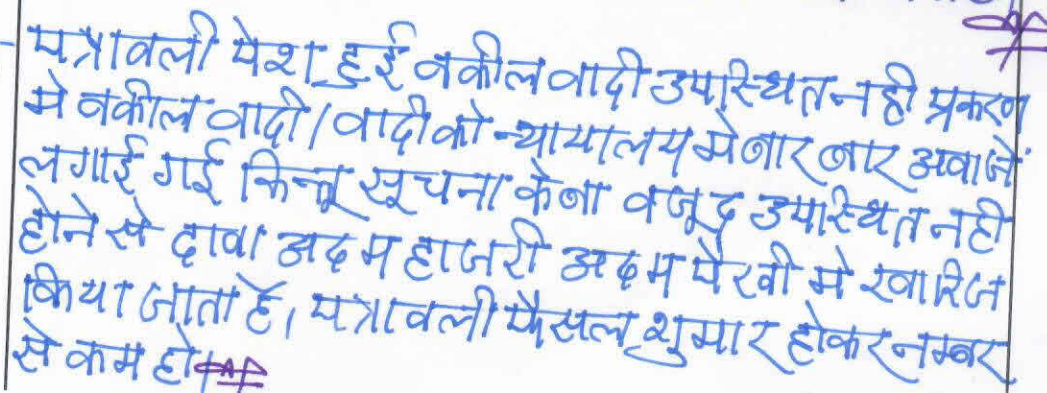 पत्रावली पेश हुई वकील वादी उपस्थित नही प्रकरण
मे वकील वादी/वादी को न्यायालय मे बार बार अवाजें
लगाई गई किन्तू सूचना के बा वजूद उपस्थित नही
होने से दावा अदम हाजरी अदम पैरवी मे खारिज
किया जाता है, पत्रावली फैसल शुमार होकर नम्बर
से कम हो।